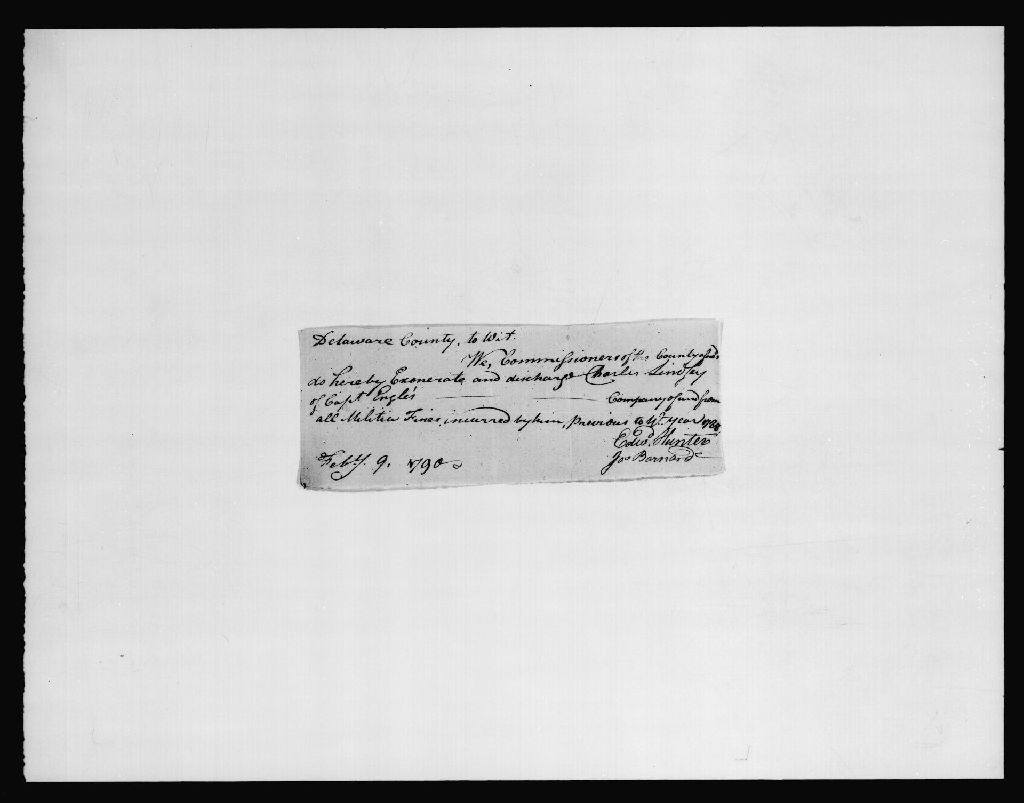 Delaware County, to Wit.
We, Commissioners of the County of said
do hereby Exonerate and discharge Charles Lindsey
of Capt. Engle's Company of and from
all Militia Fines, incurred by him, Previous to ye. year
Edwd. Hunter
Jas. Barnard
Feby. 9. 1790